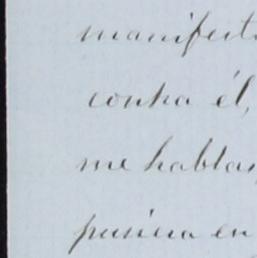 manifest
contra él,
me hablas
pusiera en